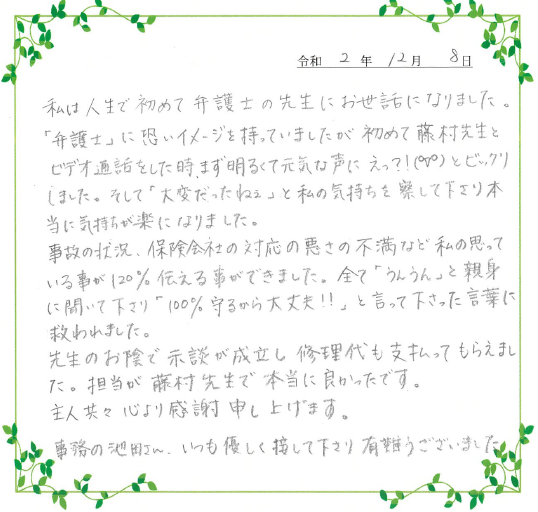 令和 2 年 12月 8日
私は人生で初めて弁護士の先生にお世話になりました。
「弁護士」に恐いイメージを持っていましたが初めて藤村先生と
ビデオ通話をした時、まず明るくて元気な声にえっ?!(°▽°)とビックリ
しました。そして「大変だったねぇ」と私の気持ちを察して下さり本
当に気持ちが楽になりました。
事故の状況、保険会社の対応の悪さの不満など私の思って
いる事が120%伝える事ができました。全て「うんうん」と親身
に聞いて下さり「100%守るから大丈夫!!」と言って下さった言葉に
救われました。
先生のお陰で示談が成立し修理代も支払ってもらえまし
た。担当が藤村先生で本当に良かったです。
主人共々心より感謝申し上げます。
事務の池田さん、いつも優しく接して下さり有難うございました